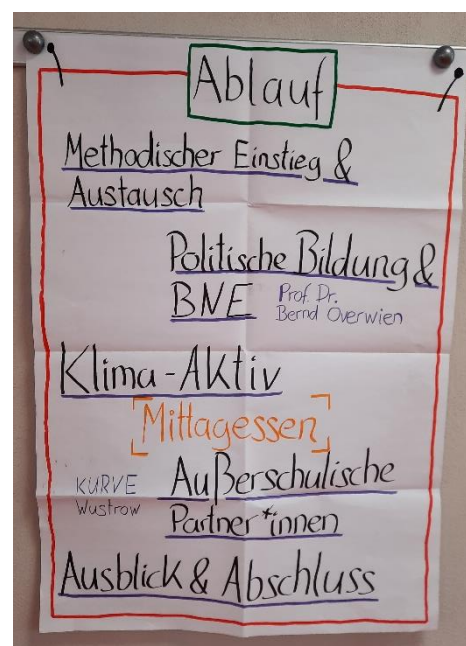 Ablauf
Methodischer Einstieg &
Austausch
Politische Bildung &
BNE Prof. Dr.
Bernd Overwien
Klima-Aktiv
Mittagessen
KURVE Außerschulische
Wustrow Partner*innen
Ausblick & Abschluss